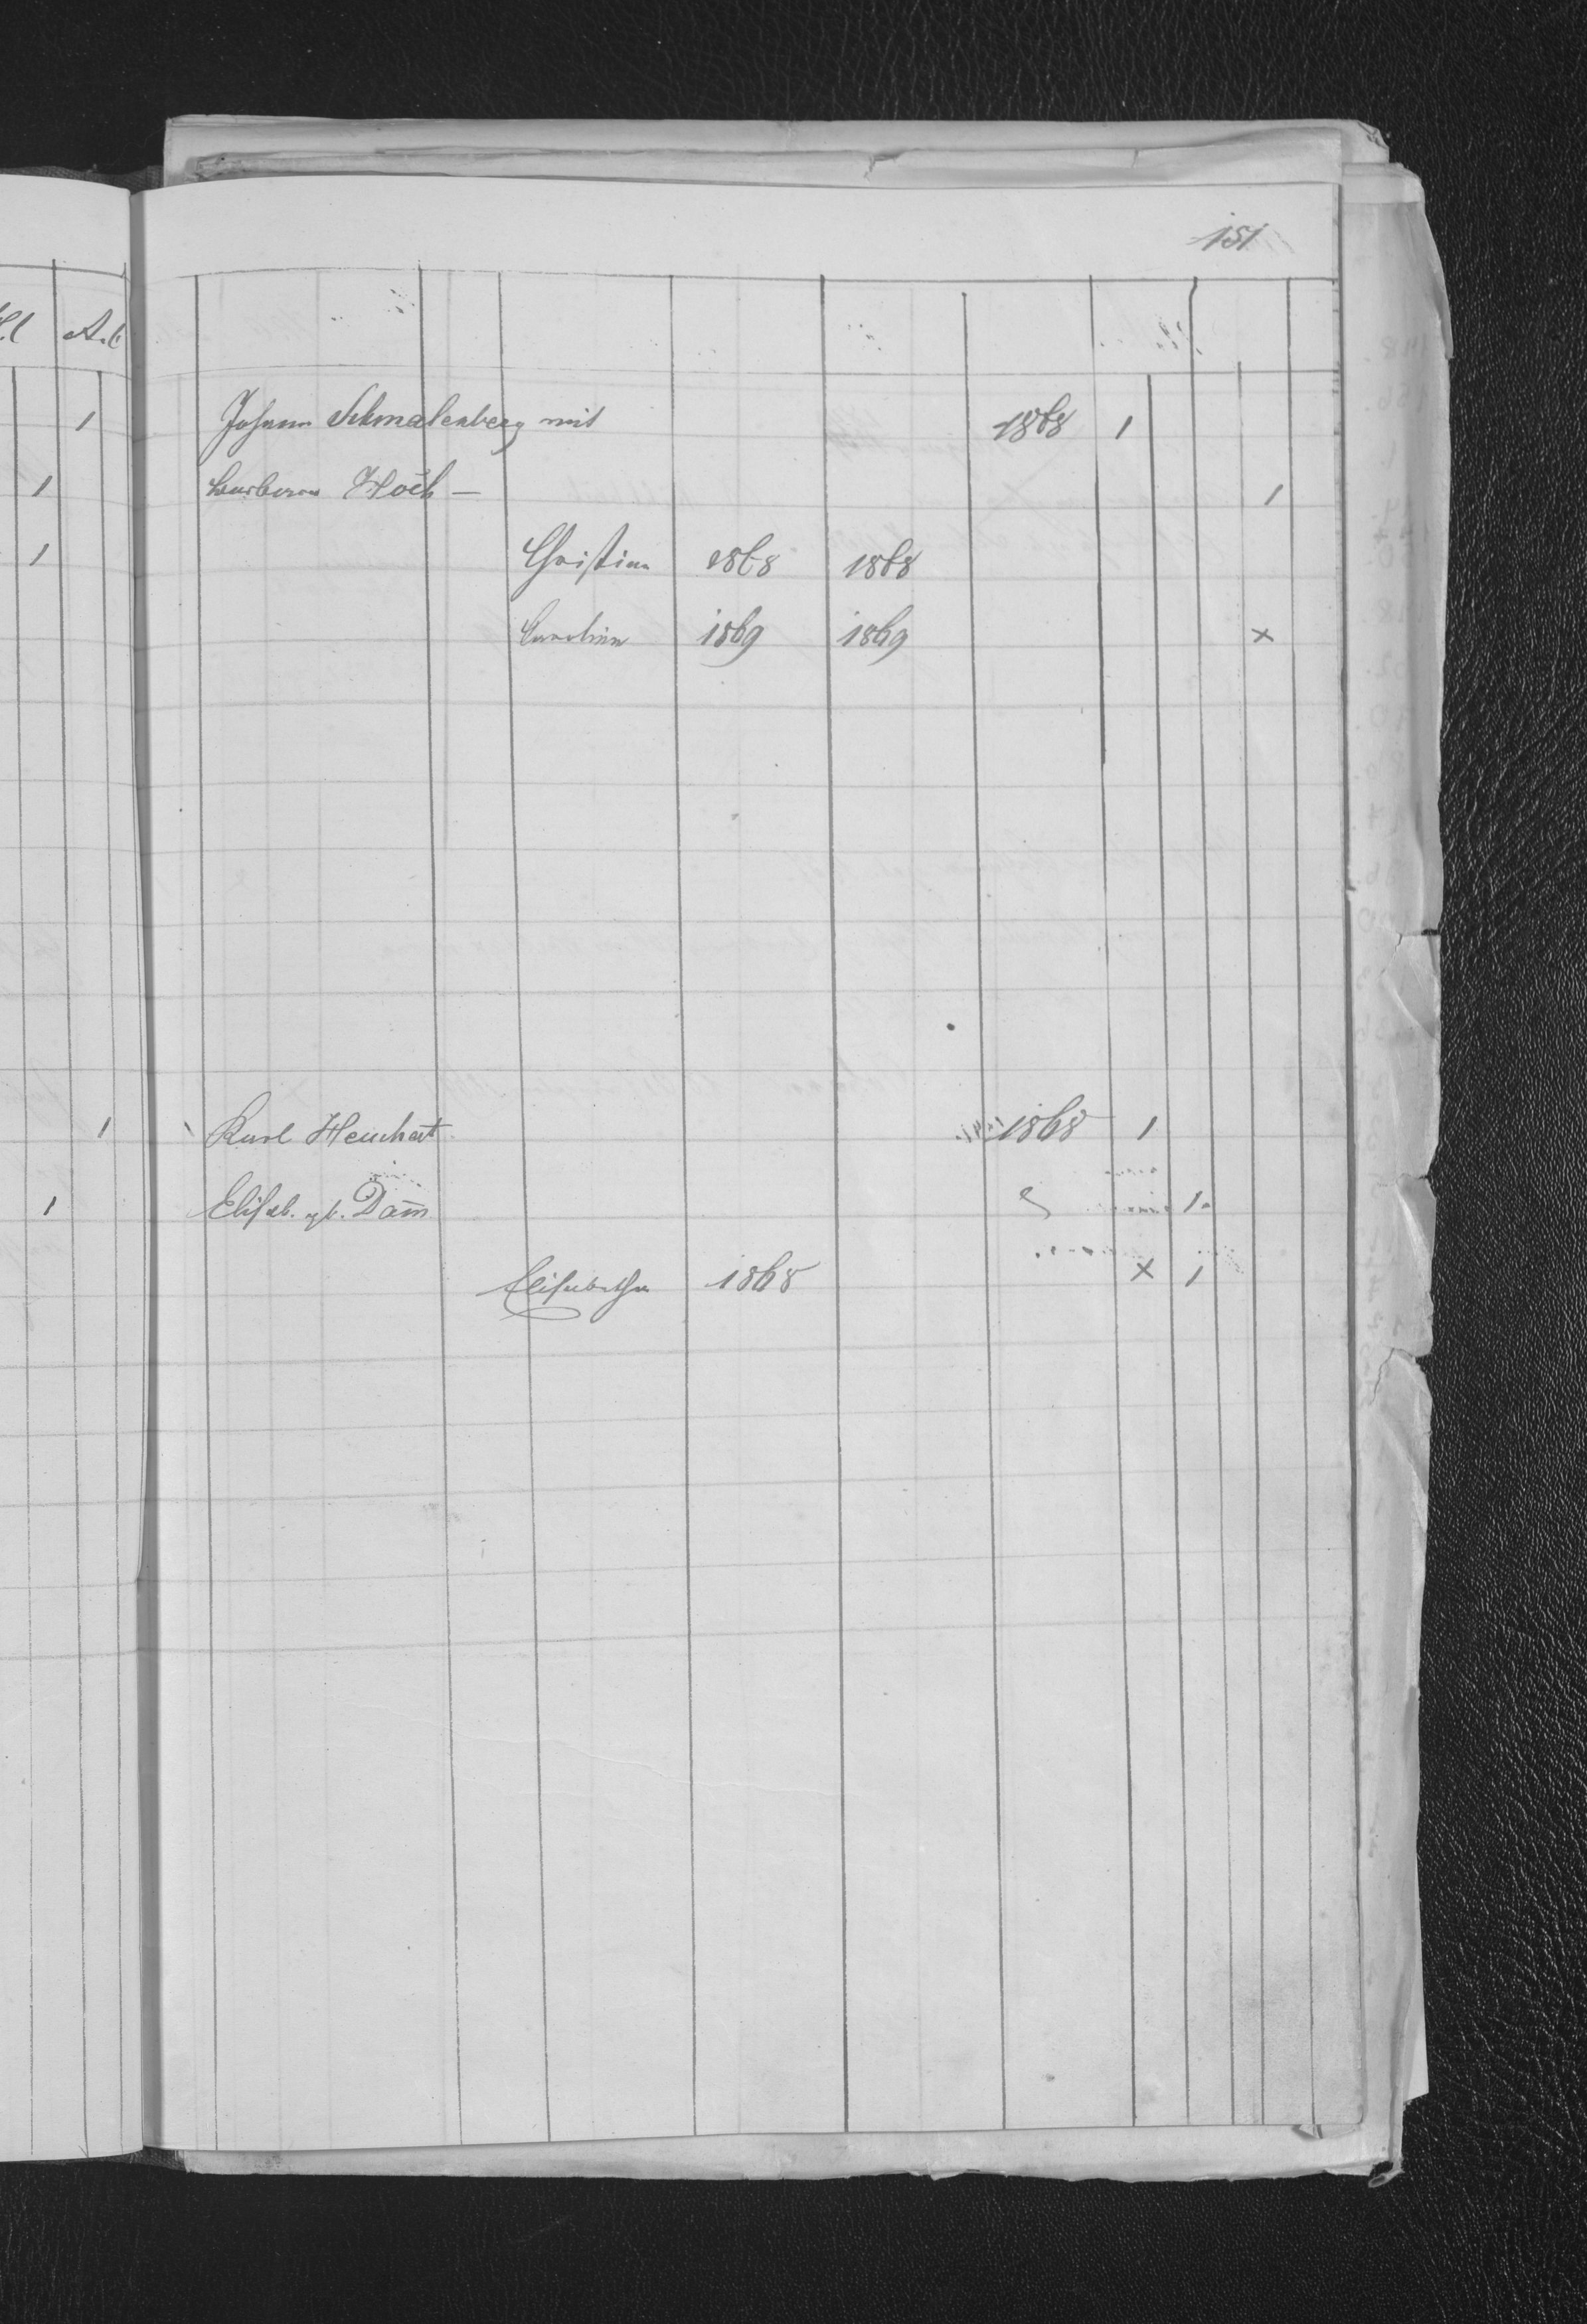 151
A.C
1 Johann Schmalenberg mit 1868 1
1 Barbara Höch — 1
1 Christian 1868 1868
Carolina 1869 1869 x
1 Karl Heuchert 1868 1
1 Elisab. geb. Dam̅ 1
Elisabetha 1868 x 1